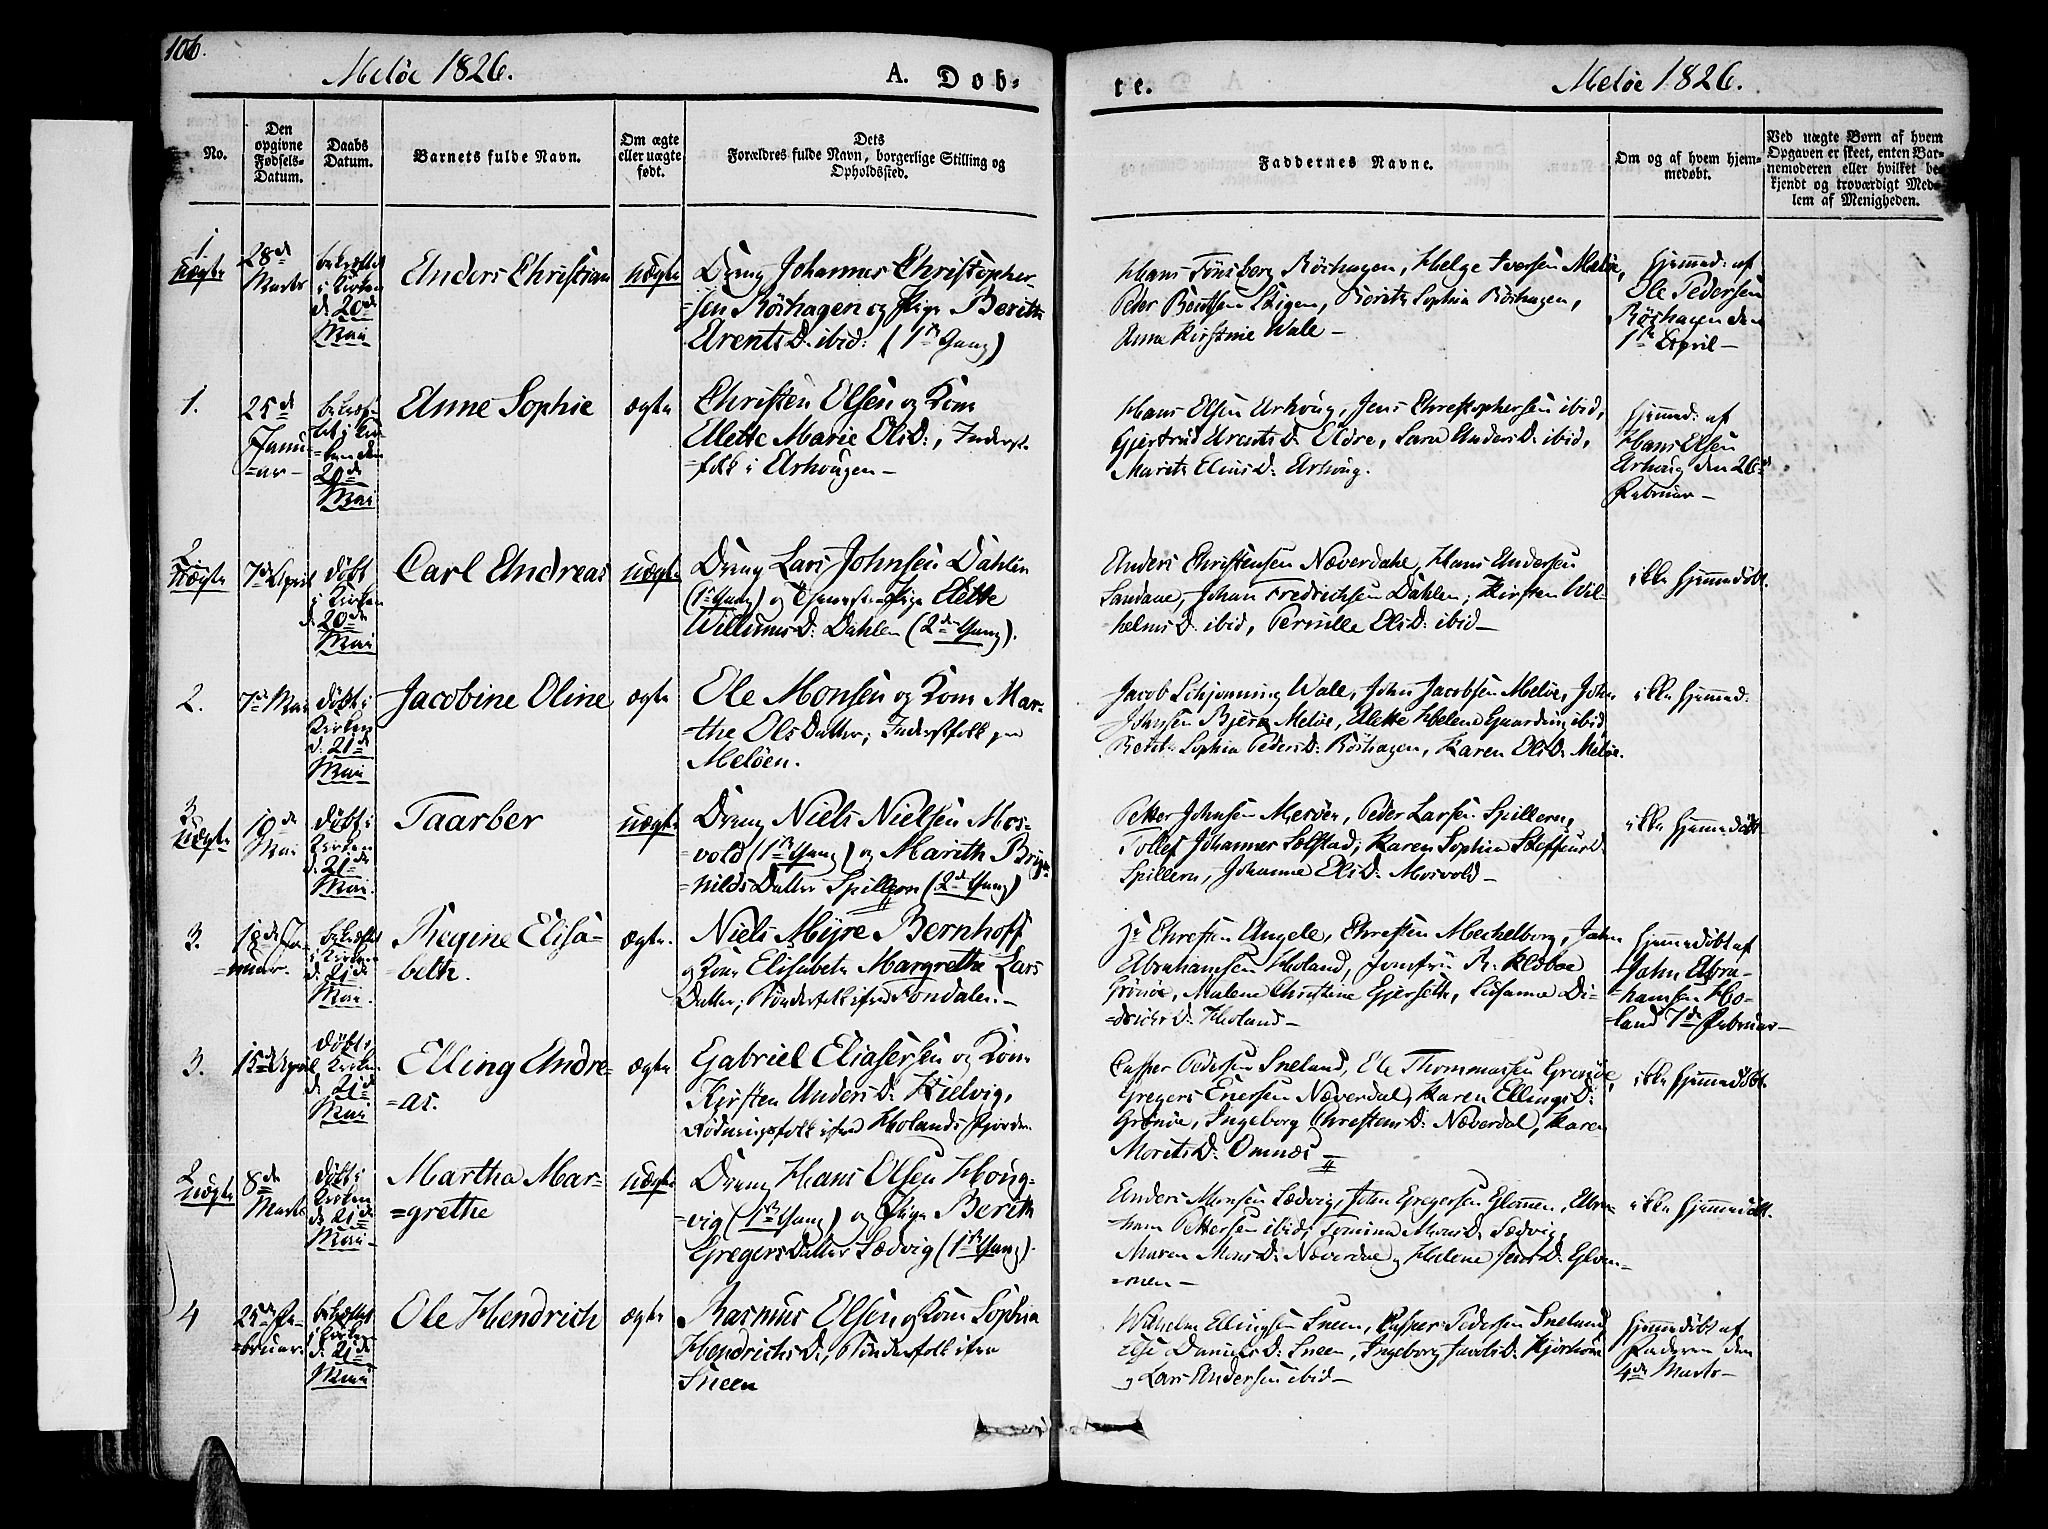 106.
Meløe 1826.
A. Dob-
te.
Meløe 1826.
No.
Den opgivne Fødsels-Datum.
Daabs Datum.
Barnets fulde Navn.
Om ægte eller uægte født.
Dets
Forældres fulde Navn, borgerlige Stilling og
Opholdssted.
Faddernes Navne.
Om og af hvem hjem-
medøbt.
Ved uægte Børn af hvem
Opgaven er skeet, enten Bar-
nemoderen eller hvilket be-
kjendt og troværdigt Med-
lem af Menigheden.
1
uægte
28de
Marts
i Kirken
d. 20de
Mai
Anders Christian
uægte
Dreng Johannes Christopher-
=sen Röshagen og Pige Berith
ArentsD. ibid: (1ste Gang)
Hans Tönsberg Röshagen, Helge Iversen Meløe,
Peder Bentsen Skigen, Berith Sophia Röshagen,
Anna Kirstine Wale –
Hjemmed: af
Ole Pedersen
Röshagen den
1ste April –
1.
25de
Janu-
=ar –
20de
Mai
Anne Sophie
ægte
Christen Olsen og Kone
Elette Marie OlsD:, Inderst-
=folk i Arhougen –
Hans Olsen Arhoug, Jens Christophersen ibid,
Gjertrud ArentsD. Eldre, Sara AndersD. ibid,
Marith EliasD. Arhoug.
Hjemmed: af
Hans Olsen
Arhoug den 26de
Februar –
2
uægte
7de April
döbt
i Kirken
d. 20de
Mai
Carl Andreas
uægte
Dreng Lars Johnsen Dahlen
(1ste Gang) og Pige Elette
WillumsD: Dahlen (2den Gang).
Anders Christensen Næverdahl, Hans Andersen
Sandaae, Johan Fredrichsen Dahlen, Kirsten Wil-
helmsD. ibid, Pernille OlsD: ibid –
ikke hjemmedöbt.
2.
7de Mai
döbt i
Kirken
d. 21de
Mai
Jacobine Oline
ægte
Ole Monsen og Kone Mar-
=the OlsDatter, Inderstfolk paa
Meløen.
Jacob Schjønning Wale, John Jacobsen Meløe, John
Johnsen Bjerg Meløe, Elette Helene Gaarding ibid,
Sophia PedersD: Röshagen, Karen OlsD: Meløe.
ikke hjemmed:
3
uægte
10de
Mai
döbt i
Kirken
d. 21de
Mai.
Taarber
uægte
Dreng Niels Nielsen Mos-
=vold (1ste Gang) og Marith Bryn-
=hildsDatter Spilleren (2den Gang)
Petter Johnsen Mesöen, Peder Larsen Spilleren,
Tollef Johannes Solstad, Karen Sophia SteffensD.
Spilleren, Johanna OlsD: Mosvold –
ikke hjemmedöbt
3.
18de Ja-
=nuar.
i Kirken
d. 21de
Mai.
Regine Elisa-
beth.
ægte.
Niels Myre Bernhoff
og Kone Elisabeth Margrethe Lars
Datter, Bönderfolk ifra Fondalen. –
Hr Christen Angele, Christen Mechelborg, John
Abrahamsen Holand, Jomfru R. Kildboe
Grönöe, Malene Christine Gjerseth, Susanna Di-
=drichsD: Holand –
Hjemmedöbt af
John Abra-
=hamsen Ho-
=land 7de Februar –
3.
15de April
döbt i
Kirken
d. 21de
Mai
Elling Andre-
=as.
ægte
Gabriel Eliasersen og Kone
Kirsten AndersD: Kielvig,
Rödningsfolk ifra Holands Fjorden.
Casper Pedersen Sneland, Ole Thommassen Grönöe,
Gregers Enersen Næverdal, Karen EllingsD:
Grönöe, Ingeborg ChrestensD: Næverdal, Karen
MoritsD: Omnæs –
ikke hjemmedöbt
2
uægte
8de
Marts
döbt i
Kirken
d. 21de
Mai –
Martha Mar-
=grethe
uægte
Dreng Hans Olsen Houg-
=vig (1ste Gang) og Pige Berith
GregersDatter Sædvig (1ste Gang).
Anders Monsen Sædvig, John Gregersen Glomen, Abra-
=ham Pettersen ibid, MonsD. Sædvig,
Maren MonsD. Næverdal, og Helene JensD: Glom-
=men –
ikke hjemmedöbt.
4
25de Fe-
=bruar.
i Kirken
d. 21de
Mai
Ole Hendrich
ægte
Rasmus Olsen og Kone Sophia
HendrichsD:, Bönderfolk ifra
Sneen
Wilhelm Ellingsen Sneen, Casper Pedersen Sneland,
Else DanielsD. Sneen, Ingeborg JacobsD. Kjörholm
og Lars Andersen ibid –
Hjemmedöbt af
Faderen den
4de Marts –